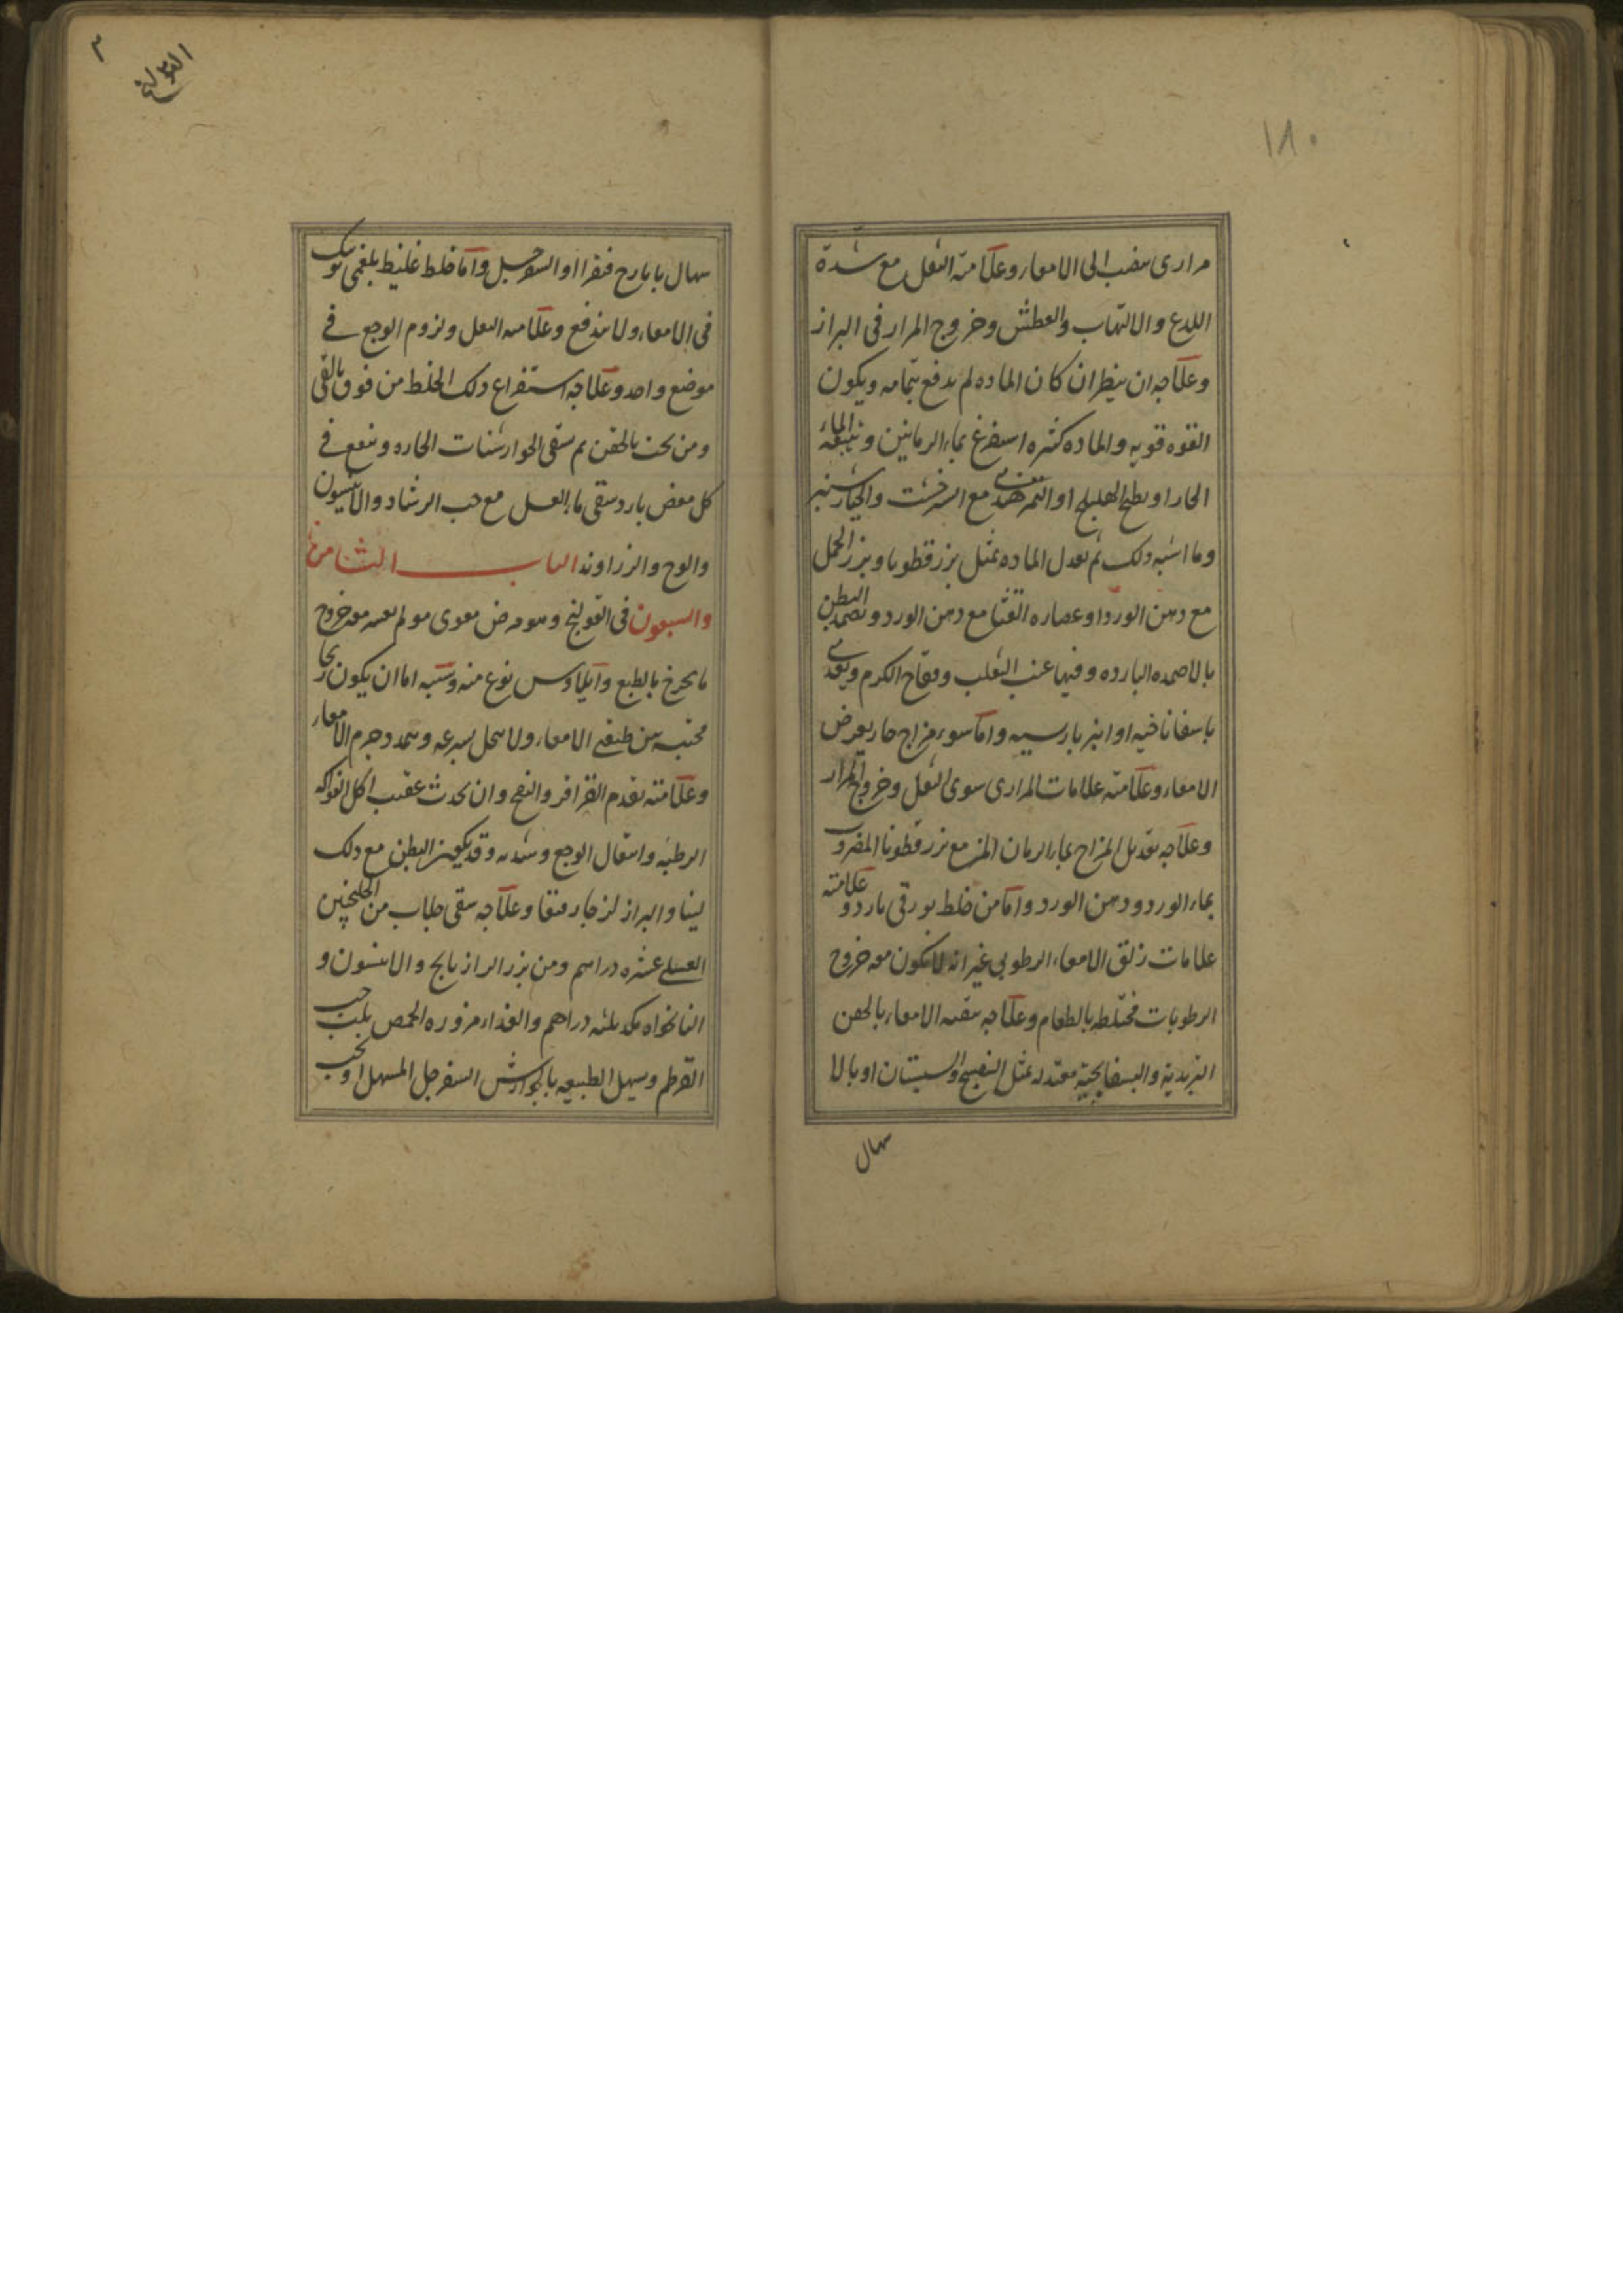 ١٨٠
مراری ینصب الی الامعاء وعلامته الثقل مع شدة
اللدع والالتهاب والعطش وخروج المرار فی البراز
وعلاجه ان ینظر ان کان الماده لم یدفع بتمامه ویکون
القوه قویه والماده کثیره استفرغ بماء الرمانین ویتبعه الماء
الحار او بطبخ الهلیلج او التمر هندی مع الشرخشت والخیار شنبر
وما اشبه ذلک ثم یعدل الماده بمثل بزر قطونا وبزر الحمل
مع دهن الورد او عصاره القثا مع دهن الورد ویضمد البطن
بالاضمده البارده وفیها عنب الثعلب وفقاح الکرم ویغذی
باسفاناخیه او انبرباریسیه واما سوء مزاج حار یعرض
الامعاء وعلامته علامات المراری سوی الثقل وخروج المرار
وعلاجه تعدیل المزاج بماء الرمان المز مع بزر قطونا المضروب
بماء الورد ودهن الورد واما من خلط بورقی بارد وعلامته
علامات زلق الامعاء الرطوبی غیر انه لایکون معه خروج
الرطوبات مختلطه بالطعام وعلاجه تنقیه الامعاء بالحقن
التربدیة والبسفایجیة معتدله بمثل البنفسج والسبستان او بالا
سهال
القولنج
سهال بایارج فیقرا او السفرجل واما خلط غلیظ بلغمی
فی الامعاء ولا یندفع وعلامته الثقل ولزوم الوجع فی
موضع واحد وعلاجه استفراغ ذلک الخلط من فوق بالقی
ومن تحت بالحقن ثم سقی الجوارشنات الحاره وینفع فی
کل مغص بارد سقی ماء العسل مع حب الرشاد والانیسون
والوج والزراوند الباب الثامن
والسبعون فی القولنج وهو مرض معوی مولم یعسر معه خروج
ما یخرج بالطبع وایلاوس نوع منه وسببه اما ان یکون ریحا
محتبسه بین طبقتی الامعاء ولا یتحلل بسرعه ویتمدد جرم الامعاء
وعلامته تقدم القراقر والنفخ وان یحدث عقیب اکل الفواکه
الرطبه وانتقال الوجع وشدته وقد یکون البطن مع ذلک
لینا والبراز لزجا رقیقا وعلاجه سقی جلاب من الجلنجبین
العسلی عشره دراهم ومن بزر الرازیانج والانیسون و
النانخواه مکد ثلثه دراهم والغذاء مزوره الحمص بلب حب
القرطم ویسهل الطبیعه بالجوارش السفرجل المسهل او بحب